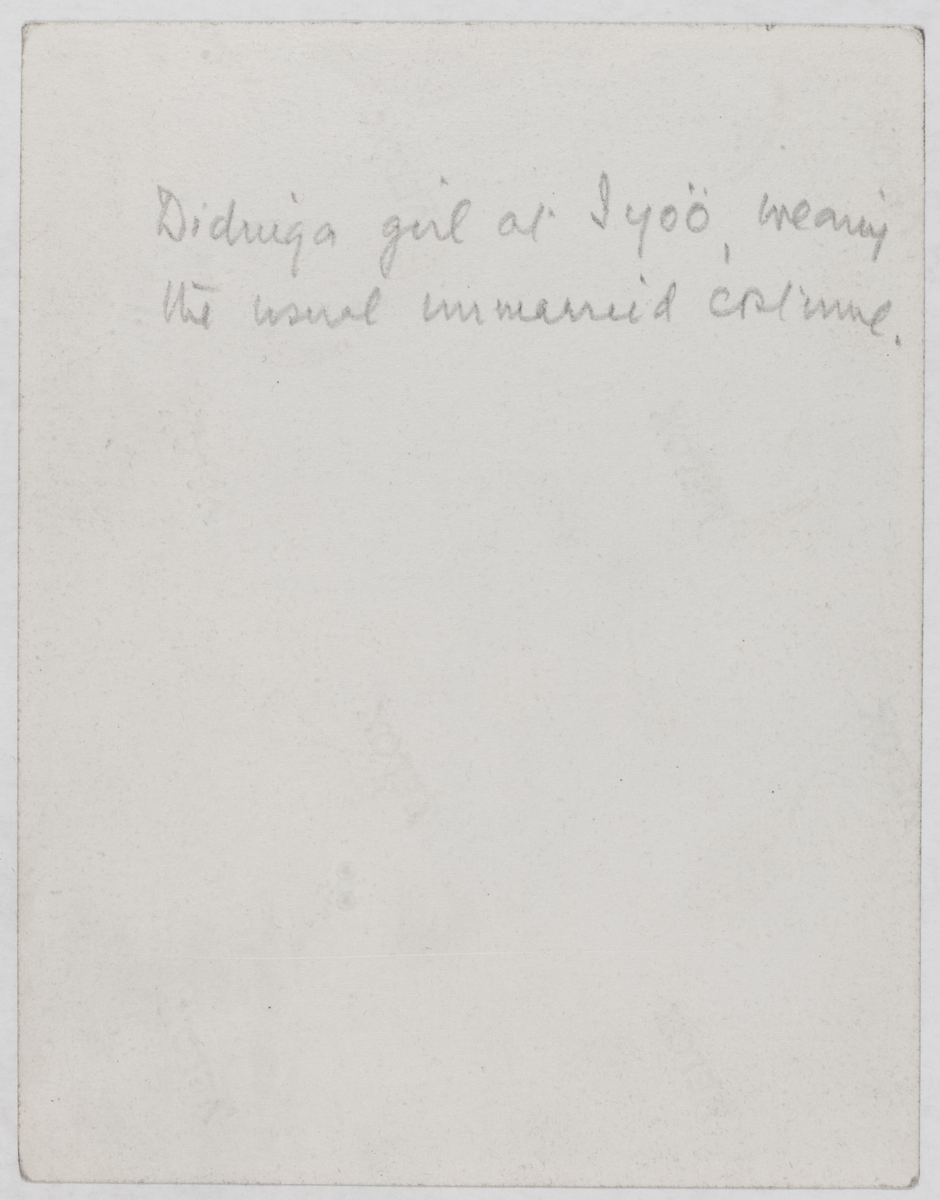 Didinga girl at Iyoö, wearing
the usual unmarried costume.